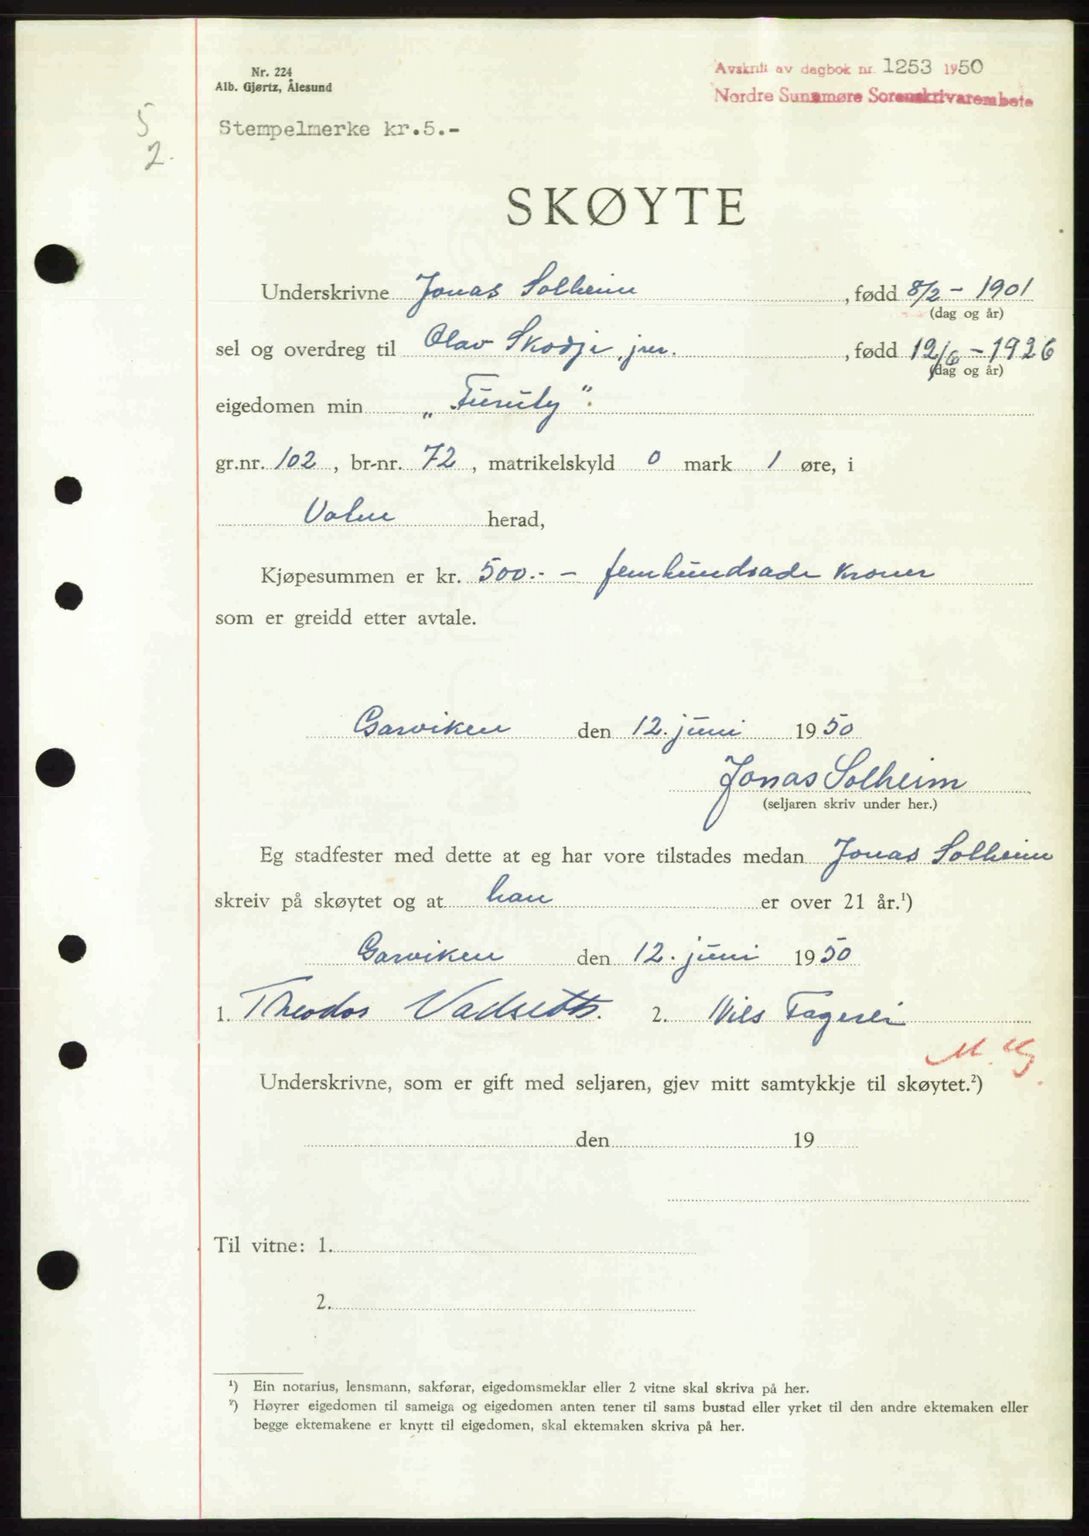 Nr. 224
Alb. Gjørtz, Ålesund
Avskrift av dagbok nr. 1253 1950
Nordre Sunnmøre Sorenskrivarembete
5
2.
Stempelmerke kr.5.-
SKØYTE
Underskrivne Jonas Solheim, fødd 8/2 - 1901
(dag og år)
sel og overdreg til Olav Skodje, jnr., fødd 12/6 - 1926
(dag og år)
eigedomen min „Furuly”.
gr.nr. 102, br-nr. 72, matrikelskyld 0 mark 1 øre, i
Vatne herad,
Kjøpesummen er kr. 500.- - femhundrade kroner
som er greidd etter avtale.
den 12. juni 1950
Jonas Solheim
(seljaren skriv under her.)
Eg stadfester med dette at eg har vore tilstades medan Jonas Solheim
skreiv på skøytet og at han er over 21 år.¹)
den 12. juni 1950
1. Theodor Vadseth. 2. Nils Fagerli
Underskrivne, som er gift med seljaren, gjev mitt samtykkje til skøytet.²)
den 19
Til vitne: 1.
2.
¹) Ein notarius, lensmann, sakførar, eigedomsmeklar eller 2 vitne skal skriva på her.
²) Høyrer eigedomen til sameiga og eigedomen anten tener til sams bustad eller yrket til den andre ektemaken eller
begge ektemakene er knytt til eigedomen, skal ektemaken skriva på her.